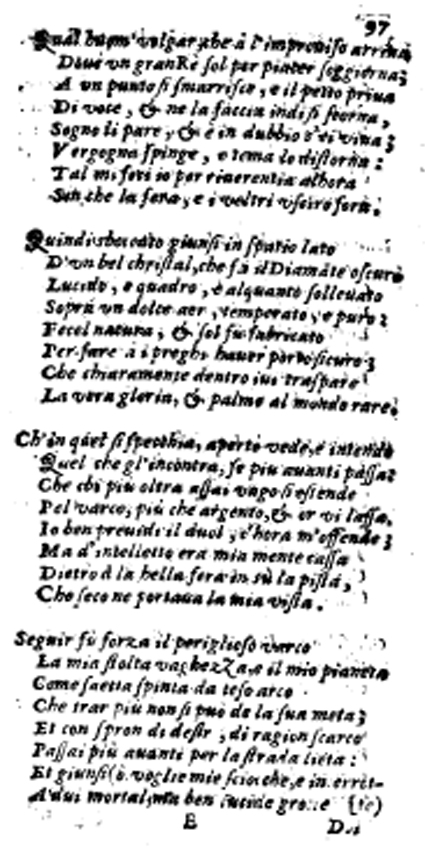 97
Qual huom' volgar, che à l'improuiso arriua
Doue vn gran Rè sol per piacer soggiorna;
A vn punto si smarrisce, e il petto priua
Di voce, & ne la faccia indi si scorna,
Sogno li pare, & è in dubbio s'ei viua;
Vergogna spinge, e tema lo distorna:
Tal mi feci io per riuerentia alhora
Sin che la fera, e i veltri vsciro fora.
Quindi sboccato giunsi in spatio lato
D'vn bel christal, che fà il Diamāte oscuro
Lucido, e quadro, e alquanto solleuato
Soprà vn dolce aer, temperato, e puro:
Fecel natura, & sol fu fabricato
Per fare à i preghi hauer porto sicuro;
Che chiaramente dentro iui traspare
La vera gloria, & palme al mondo rare.
Ch'in quel si specchia, aperto vede, e intende
Quel che gl'incontra, se più auanti passa:
Che chi più oltra assai vago si estende
Pel varco, più che argento, & or vi lassa.
Io ben preuidi il duol, c'hora m'offende;
Ma d'intelletto era mia mente cassa
Dietro à la bella fera in sù la pista,
Che seco ne portaua la mia vista.
Seguir fù forza il periglioso varco
La mia stolta vaghezza, e il mio pianeta
Come saetta spinta da teso arco
Che trar più non si può de la sua meta;
Et con spron di desir, di ragion scarco
Passai più auanti per la strada lieta:
Et giunsi (ò voglie mie sciocche, e in erret-
A dui mortal, ma ben lucide grotte (te)
E
Dui